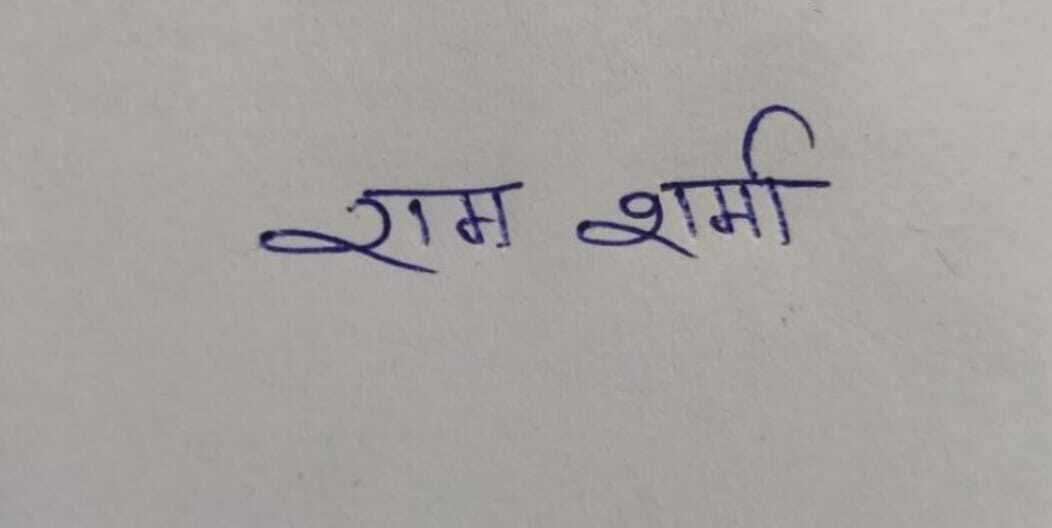 राम शर्मा